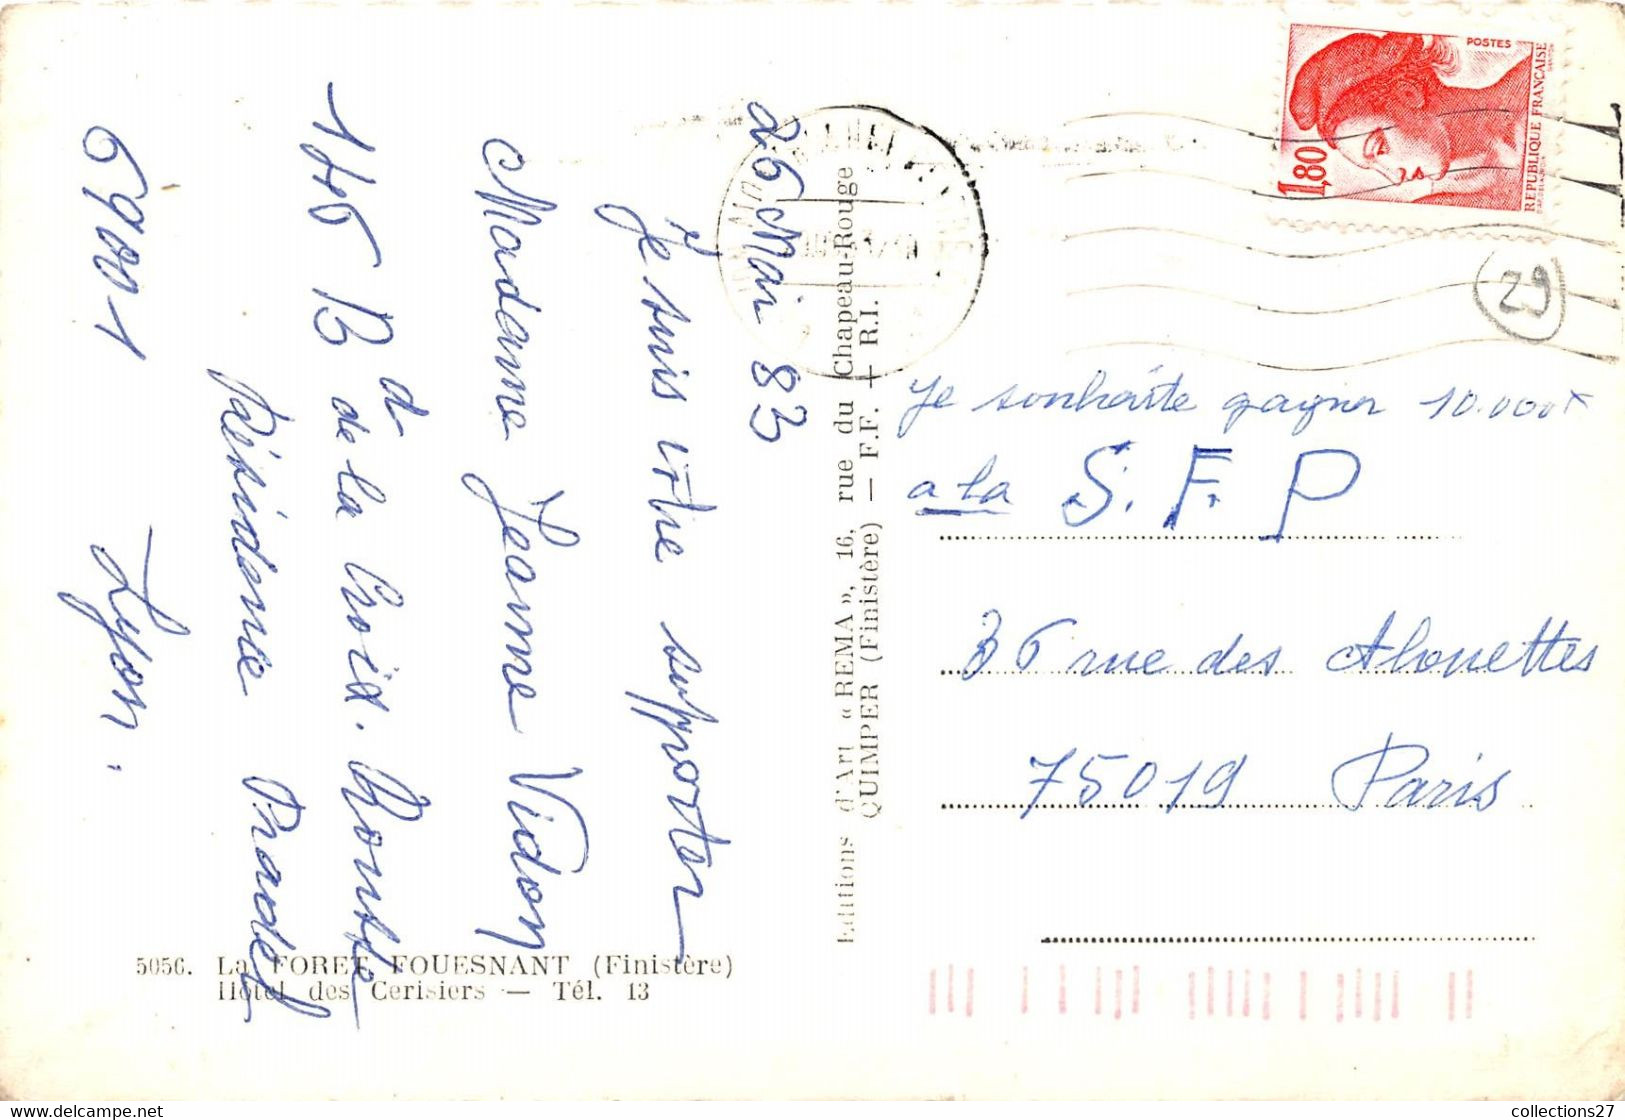 26 Mai 83
Je suis votre supporter
Madame Jeanne Vidon
146 Bd de la Croix. Rousse
Résidence Pradel
69001 Lyon.
5056. La FORET FOUESNANT (Finistère)
Hôtel des Cerisiers — Tél. 13
Editions d'Art « REMA », 16, rue du Chapeau-Rouge
QUIMPER (Finistère) — F.F. + R.I.
POSTES
REPUBLIQUE FRANÇAISE
1,80
29
Je souhaite gagner 10.000F
a la S. F. P
36 rue des Alouettes
75019 Paris
collections27